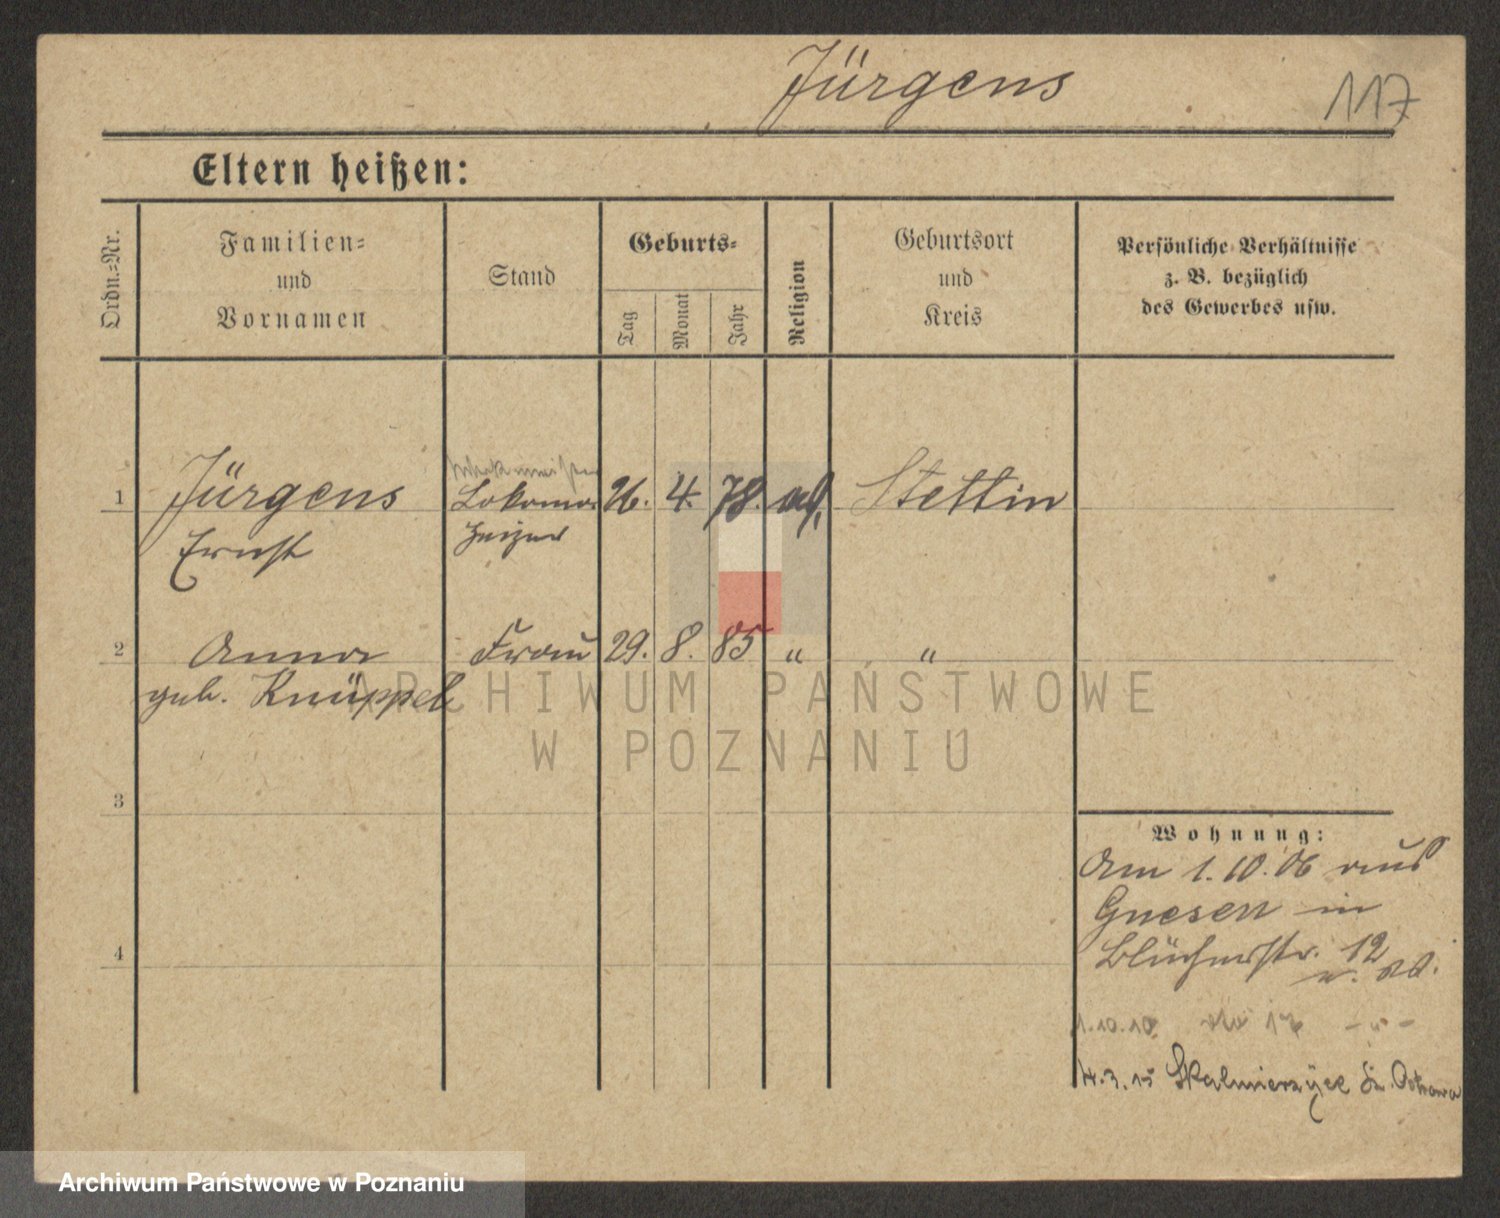 Jürgens
117
Eltern heißen:
Ordn.=Nr.
Familien=
und
Vornamen
Stand
Geburts=
Tag
Monat
Jahr
Religion
Geburtsort
und
Kreis
Persönliche Verhältnisse
z. B. bezüglich
des Gewerbes usw.
1 Jürgens Lokomo. 26. 4. 78. Stettin
Ernst heizer
2 Anna Frau 29. 8. 85 " "
geb. Knüppel
3
4
Wohnung:
Am 1.10.06 aus
Gnesen in
Blücherstr. 12
1.10.10
4.3.15 Skalmierzyce Kr. Ostrowo
ARCHIWUM PAŃSTWOWE
W POZNANIU
Archiwum Państwowe w Poznaniu